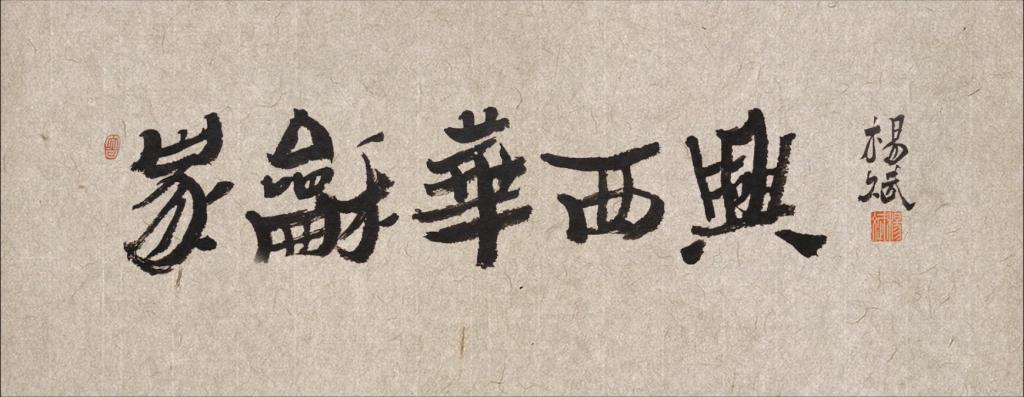 家龢華西興
楊斌